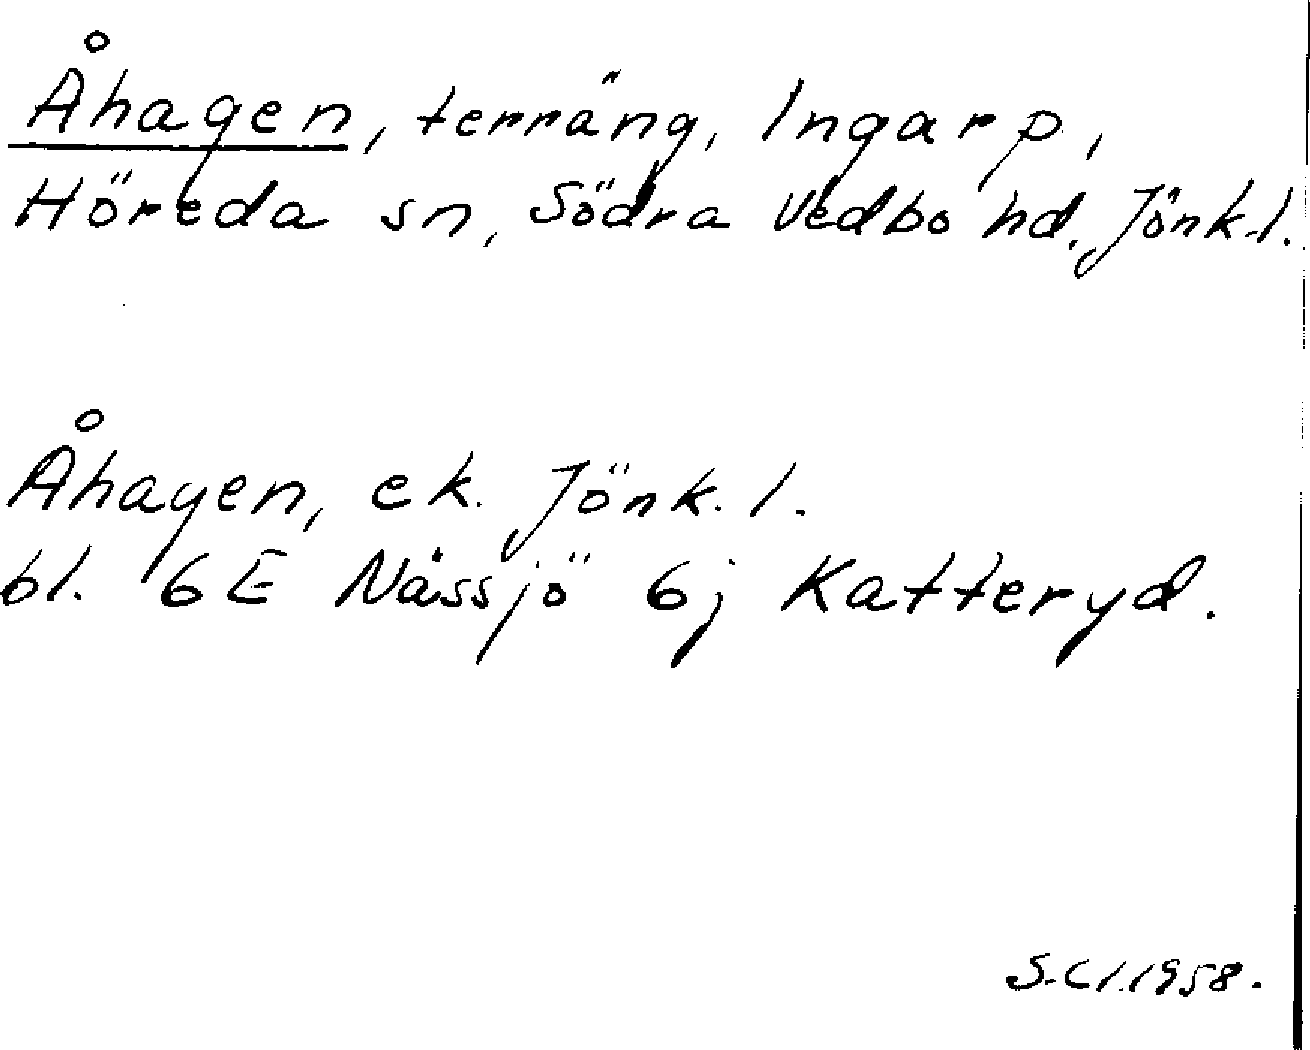 Åhagen, terräng, Ingarp,
Höreda sn, Södra Vedbo hd. Jönk.l.
Åhagen, ek. Jönk. l.
bl. 6E Nässjö 6j Katteryd.
S.Cl.1958.